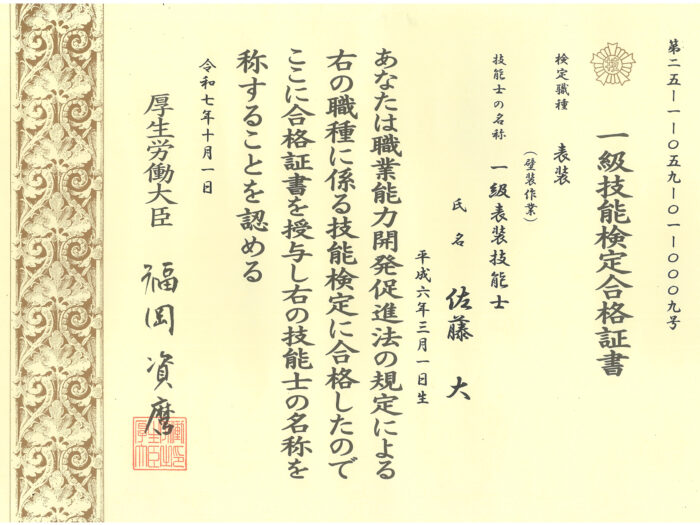 第二五-一-〇五九-〇一-〇〇〇九号
一級技能検定合格証書
検定職種 表装
(壁装作業)
技能士の名称 一級表装技能士
氏名 佐藤 大
平成六年三月一日生
あなたは職業能力開発促進法の規定による
右の職種に係る技能検定に合格したので
ここに合格証書を授与し右の技能士の名称を
称することを認める
令和七年十月一日
厚生労働大臣 福岡資麿